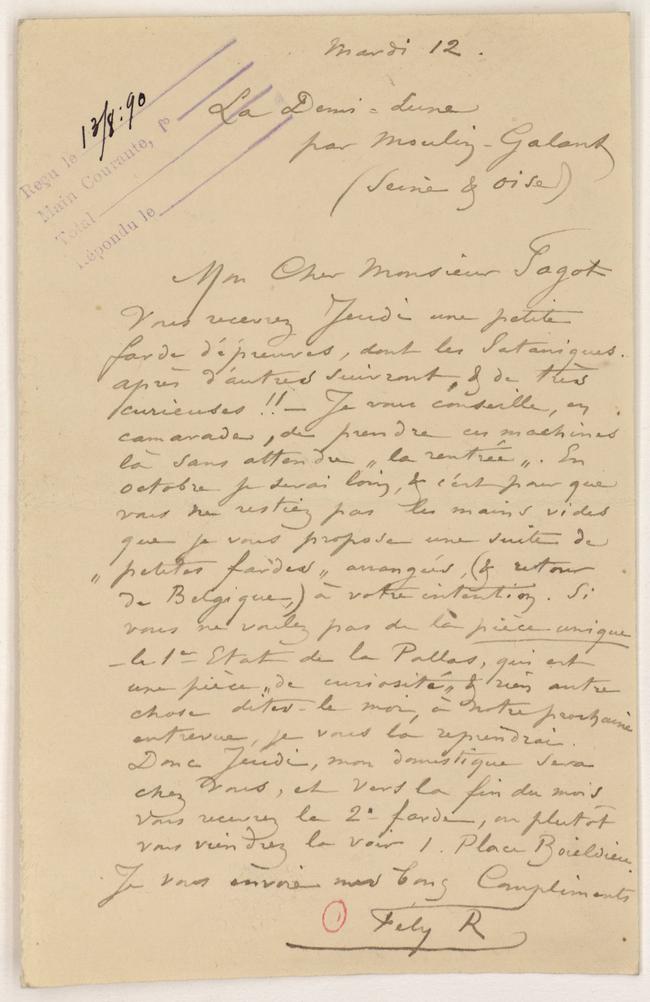 Mardi 12.
Reçu le 13/8:90
Main Courante, fo
Total
Répondu le
La Demi-Lune
par Moulin-Galant
(Seine & Oise)
Mon Cher Monsieur Fagot
Vous recevrez Jeudi une petite
farde d'épreuves, dont les Sataniques.
après d'autres suivront, & de très
curieuses !! – Je vous conseille, en
camarade, de prendre ces machines
là sans attendre „la rentrée„. En
octobre je serai loin, & c'est pour que
vous ne restiez pas les mains vides
que je vous propose une suite de
„petites fardes„ arrangées, (& retour
de Belgique,) à votre intention. Si
vous ne voulez pas de la pièce unique
– le 1er Etat de la Pallas, qui est
une pièce „de curiosité„ & rien autre
chose dites-le moi, à notre prochaine
entrevue, je vous la reprendrai.
Donc Jeudi, mon domestique sera
chez Vous, et vers la fin du mois
vous recevrez la 2e farde, ou plutôt
vous viendrez la voir 1. Place Boieldieu.
Je vous envoie mes bons Compliments
Fély R